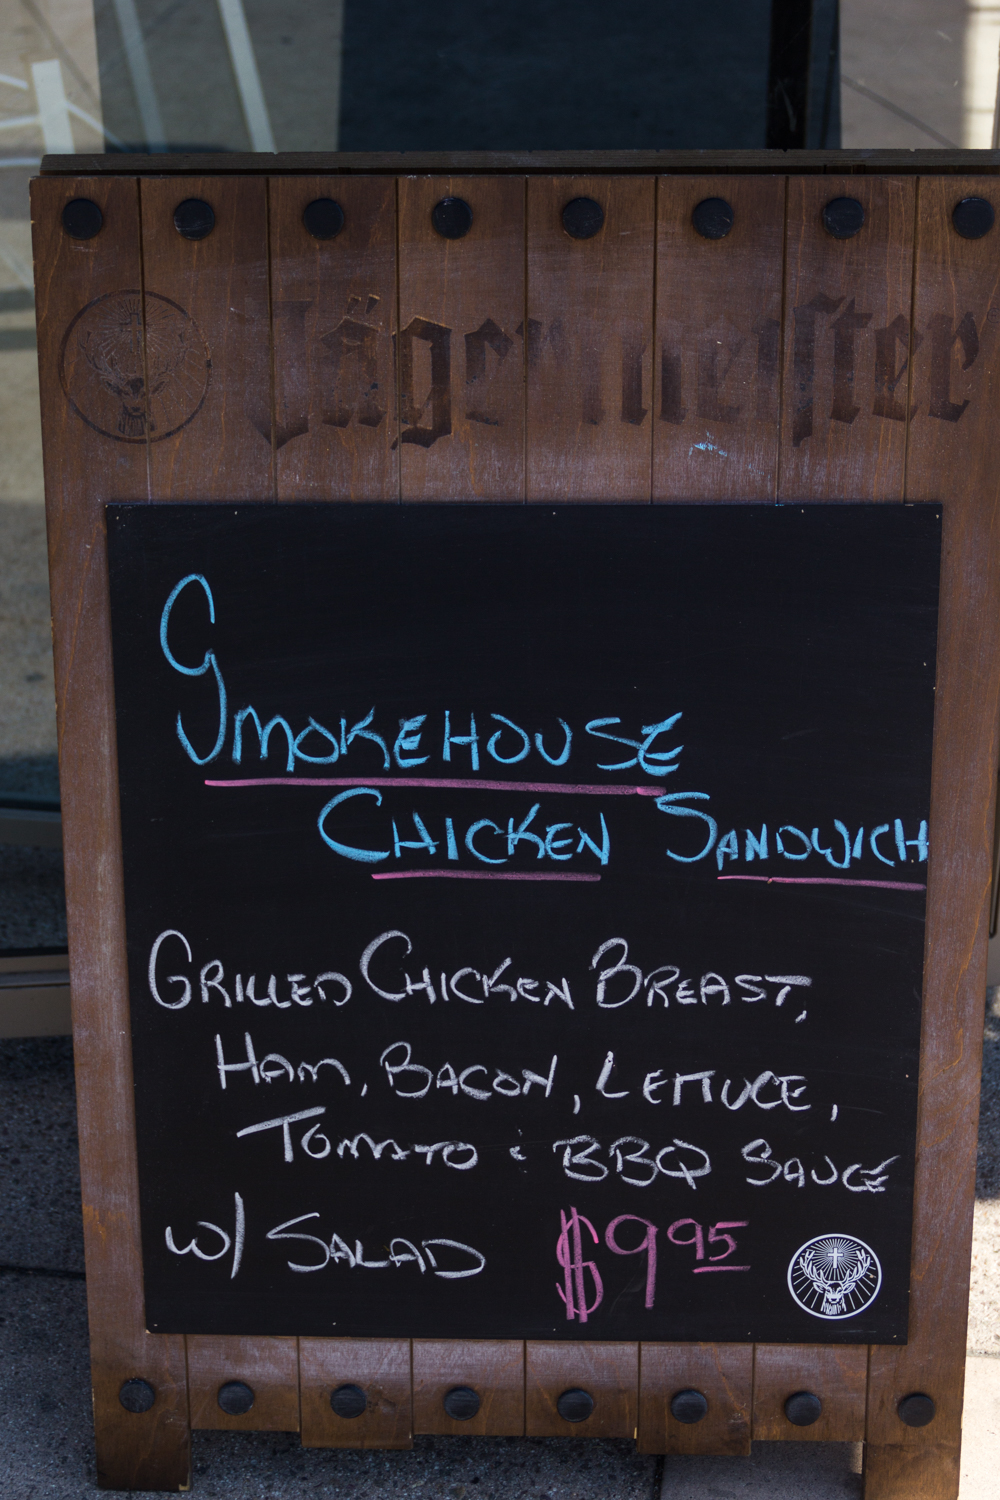 Jägermeister
SMOKEHOUSE
CHICKEN SANDWICH
GRILLED CHICKEN BREAST,
HAM, BACON, LETTUCE,
TOMATO & BBQ SAUCE
W/ SALAD $9.95